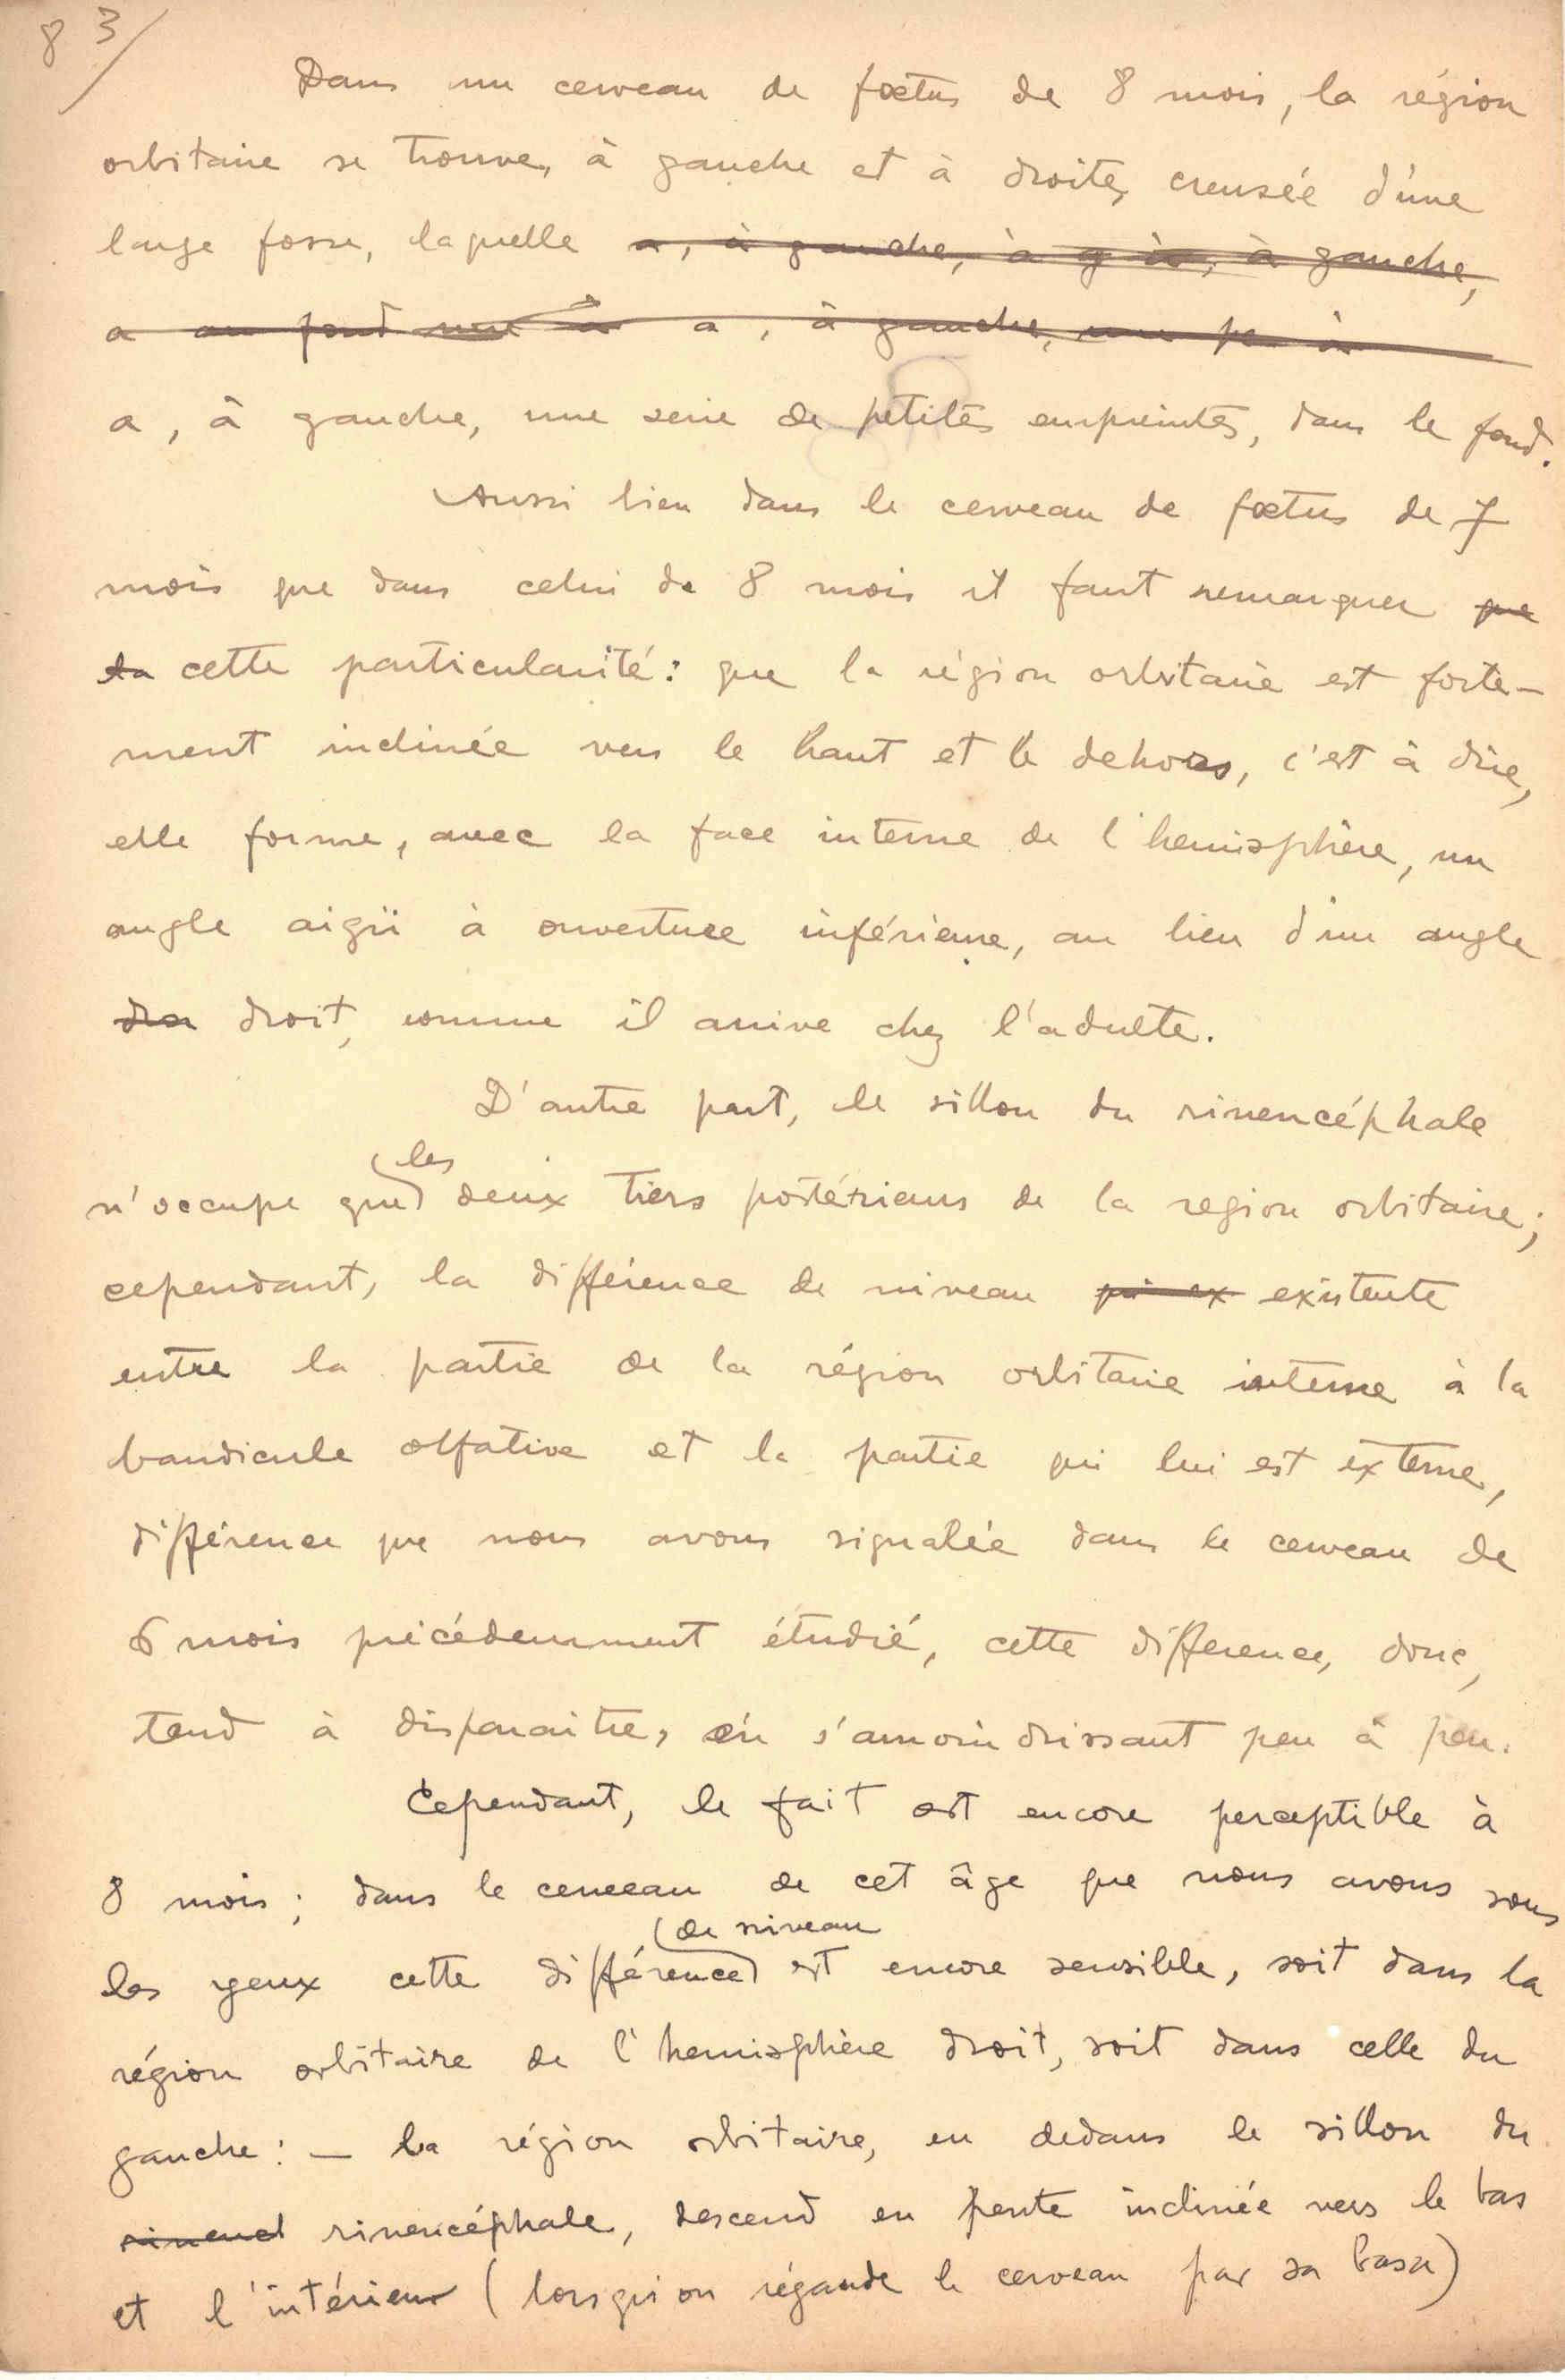 83/
Dans un cerveau de fœtus de 8 mois, la région
orbitaire se trouve, à gauche et à droite, creusée d'une
large fosse, laquelle a, à gauche, à g à, à gauche,
a au fond une a, à gauche, une pe à
a, à gauche, une serie de petites empreintes, dans le fond.
Aussi bien dans le cerveau de fœtus de 7
mois que dans celui de 8 mois il faut remarquer que
la cette particularité: que la région orbitaire est forte-
ment inclinée vers le haut et le dehors, c'est à dire,
elle forme, avec la face interne de l'hemisphère, un
angle aigü à ouverture inférieure, au lieu d'un angle
dro droit, comme il arrive chez l'adulte.
D'autre part, le sillon du rinencéphale
n'occupe que les deux tiers postérieurs de la region orbitaire;
cependant, la différence de niveau qui ex existente
entre la partie de la région orbitaire interne à la
bandicule olfative et la partie qui lui est externe,
différence que nous avons signalée dans le cerveau de
6 mois précédemment étudié, cette difference, donc,
tend à disparaitre, en s'amoindrissant peu à peu.
Cependant, le fait est encore perceptible à
8 mois; dans le cerveau de cet âge que nous avons sous
les yeux cette différence de niveau est encore sensible, soit dans la
région orbitaire de l'hemisphère droit, soit dans celle du
gauche: — la région orbitaire, en dedans le sillon du
rinencl rinencéphale, descend en pente inclinée vers le bas
et l'intérieur (lorsqu'on régarde le cerveau par sa base)